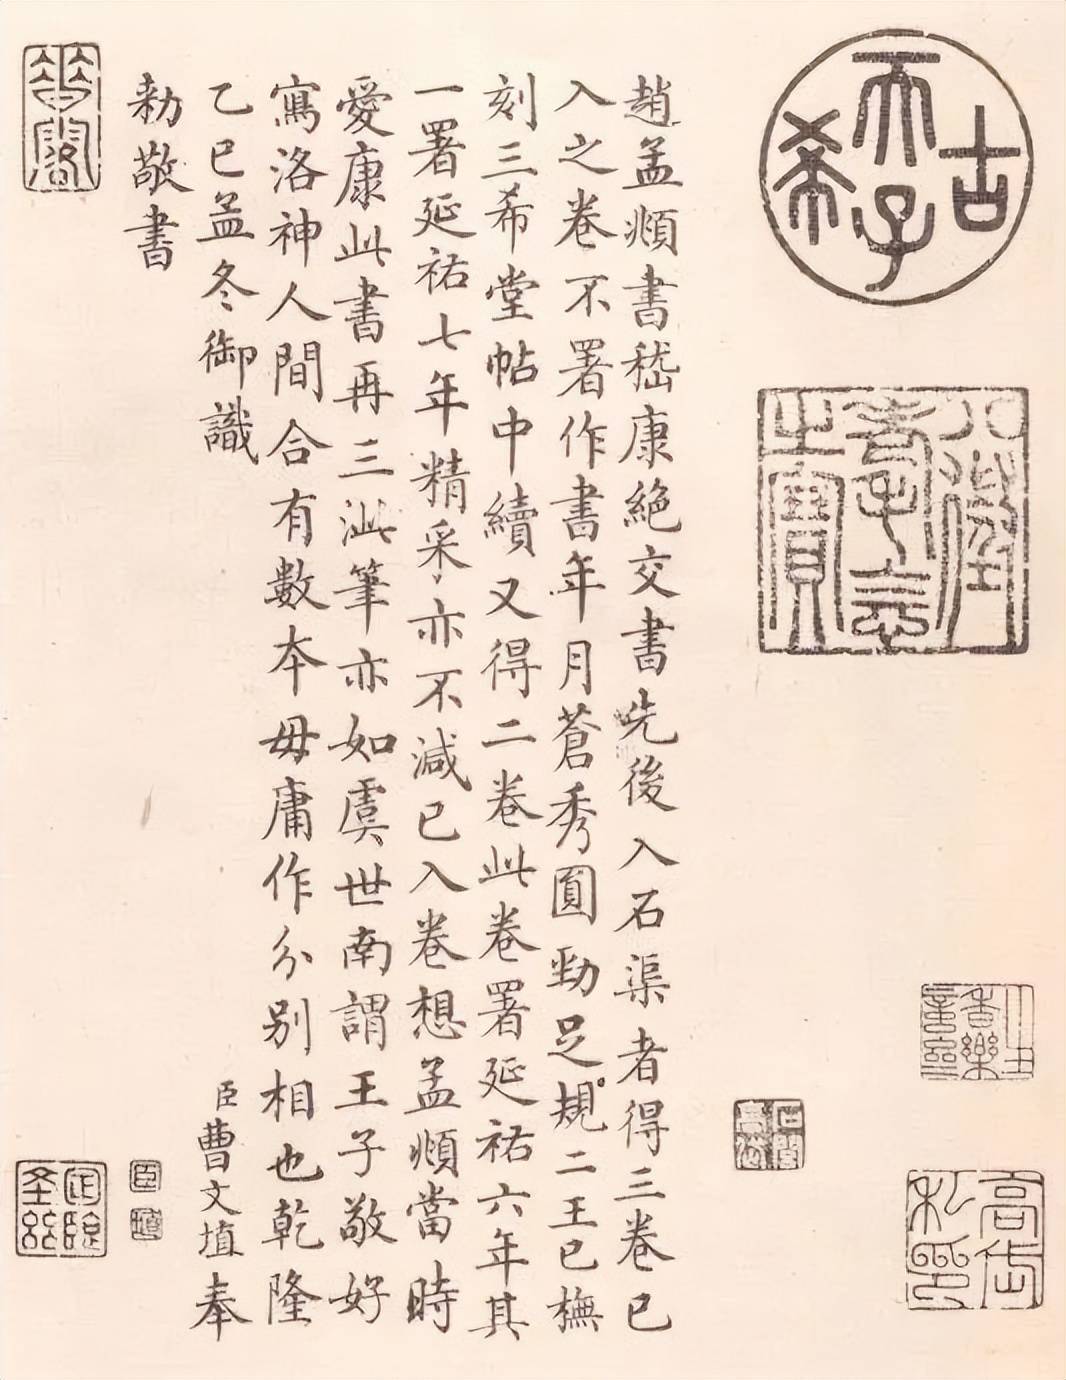 古
天子
希
八徵
耄念
之寶
趙孟頫書嵇康絕交書先後入石渠者得三卷已
入之卷不署作書年月蒼秀圓勁足規二王已橅
刻三希堂帖中續又得二卷此卷署延祐六年其
一署延祐七年精采亦不減已入卷想孟頫當時
愛康此書再三泚筆亦如虞世南謂王子敬好
寫洛神人間合有數本毋庸作分別相也乾隆
乙巳孟冬御識
臣曹文埴奉
勅敬書
高岱
私印
臣
埴